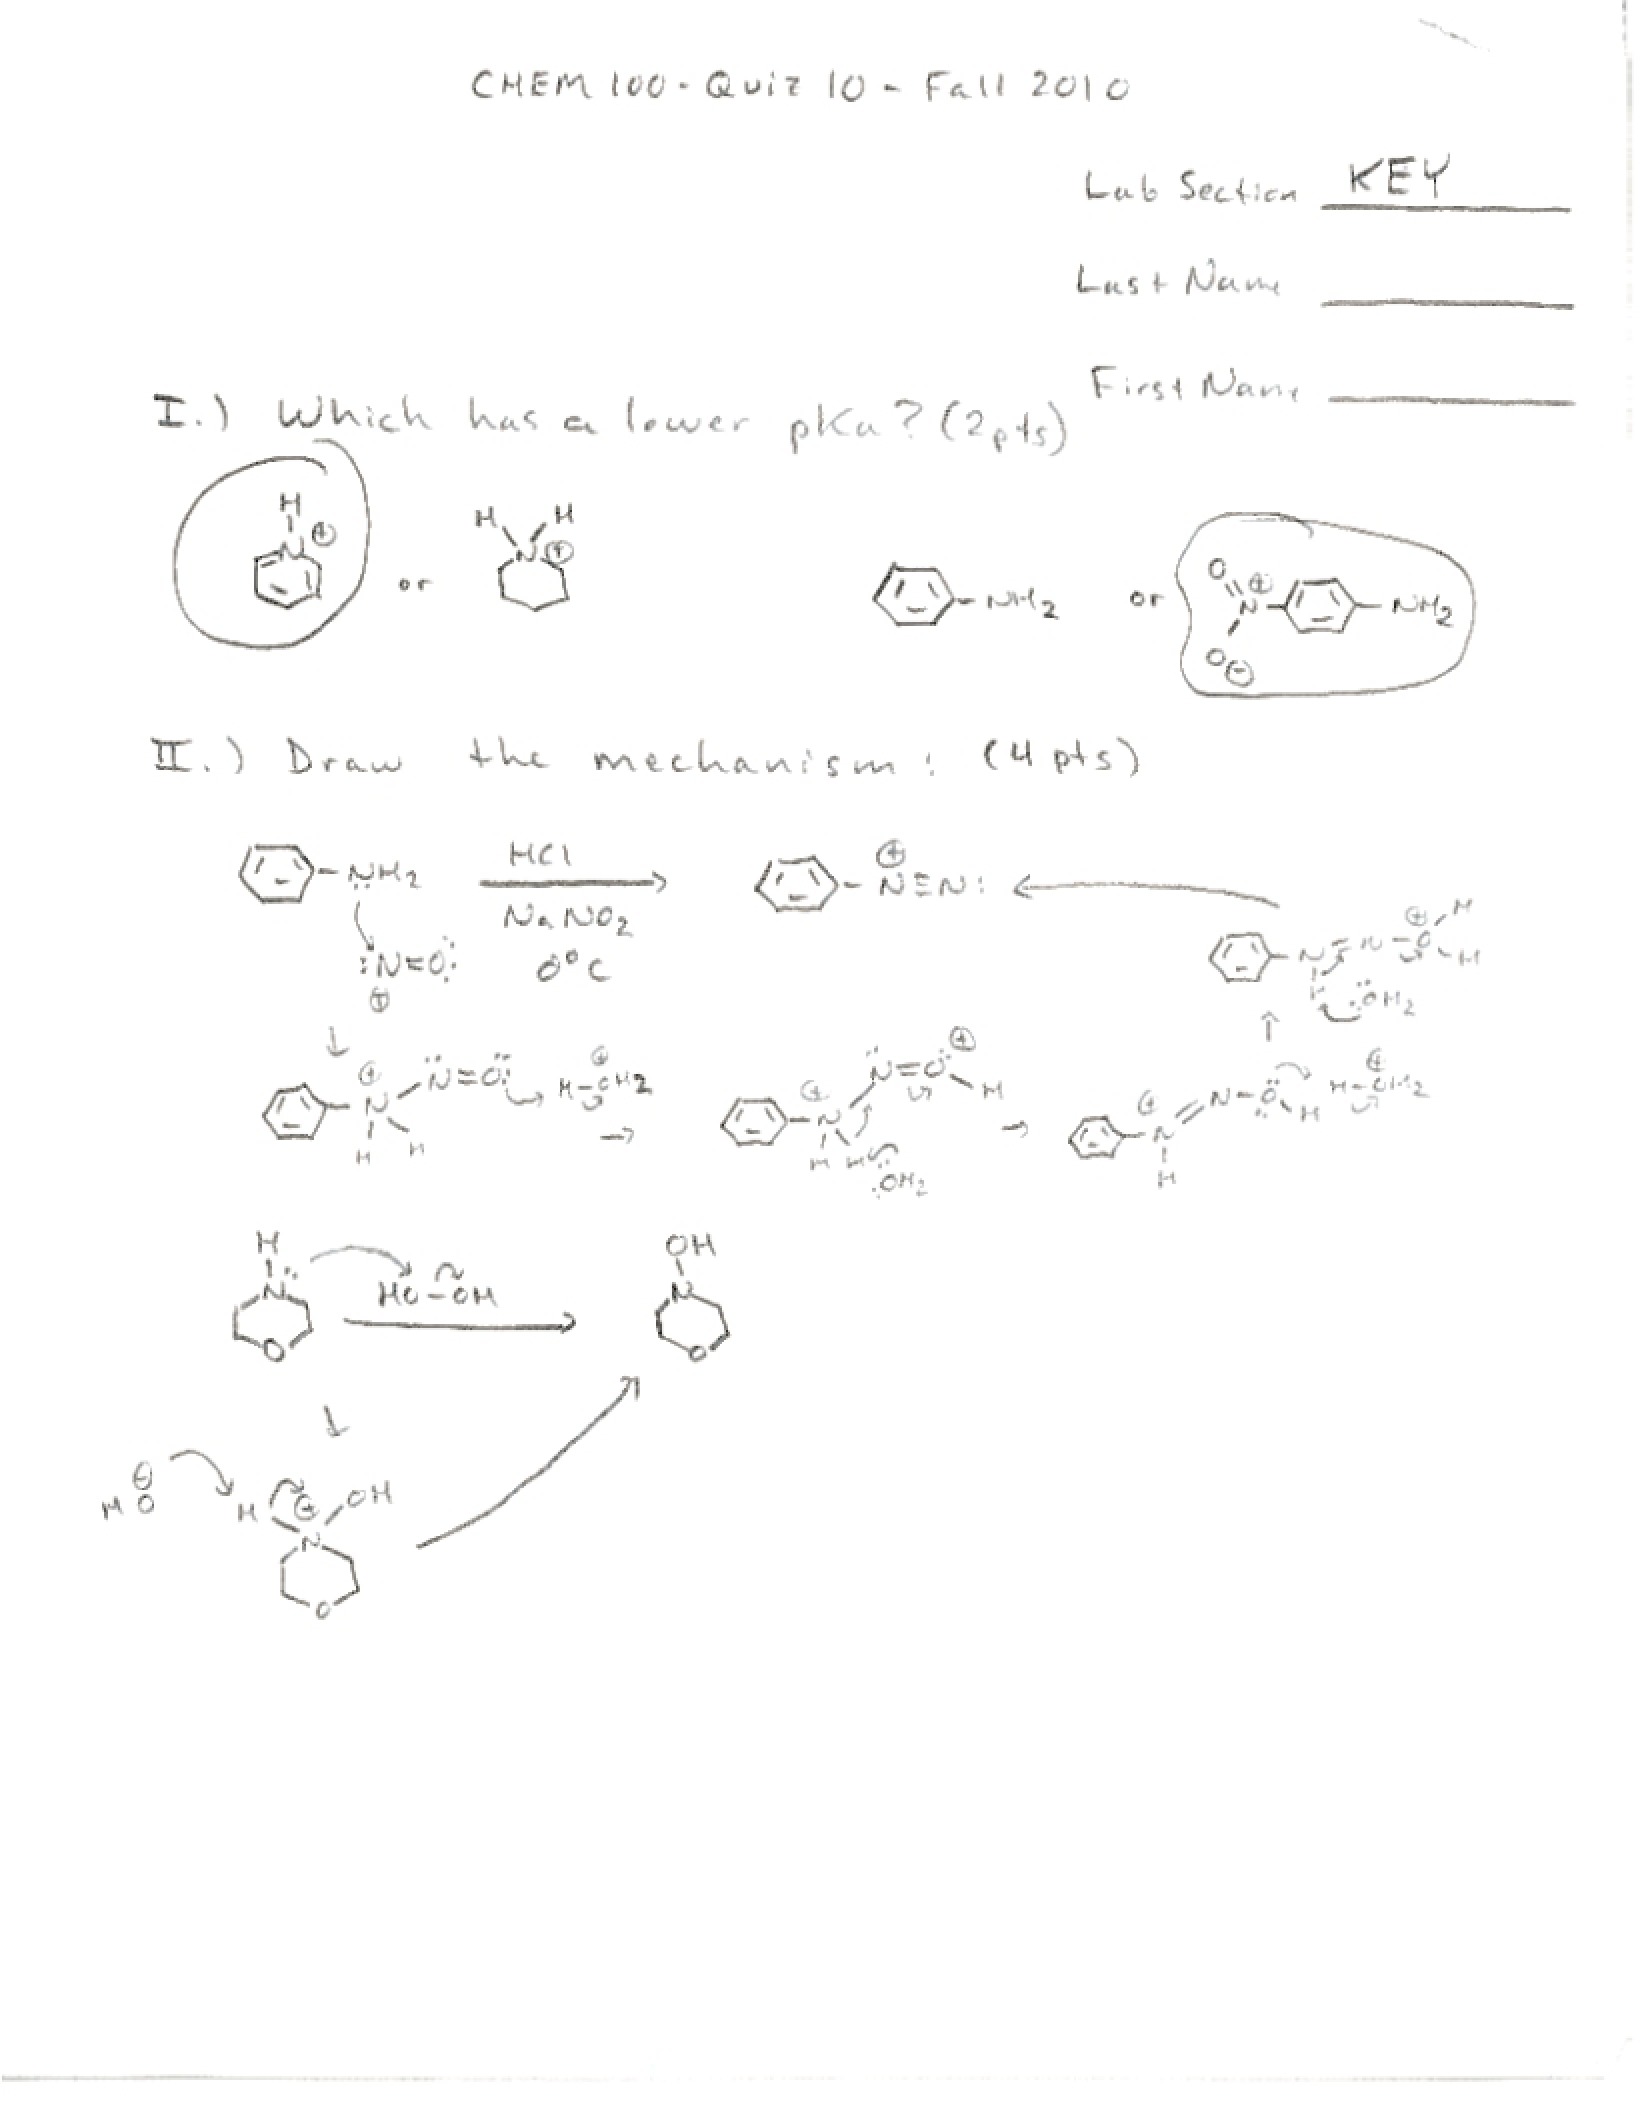 CHEM 100 - Quiz 10 - Fall 2010
Lab Section KEY
Last Name
First Name
I.) Which has a lower pKa? (2pts)
H N ⊕ or H H N ⊕
NH2 or O N ⊕ O ⊖ NH2
II.) Draw the mechanism: (4 pts)
NH2 HCl NaNO2 0°C ⊕ N≡N:
:N=O: ⊕
N=N-O ⊕ H H
H :OH2
⊕ N-N=O: H-OH2 ⊕ H H
⊕ N N=O ⊕ H H H :OH2
⊕ N=N-O H H-OH2 ⊕ H
H N: O HO-OH OH N O
HO ⊖ H ⊕ OH N O